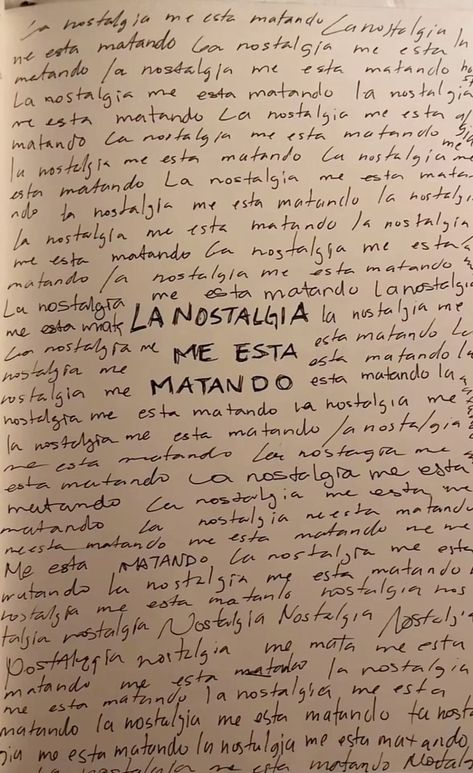 La nostalgia me esta matando La nostalgia
me esta matando La nostalgia me esta la
matando la nostalgia me esta matando
La nostalgia me esta matando la nostalgia
me esta matando La nostalgia me esta
matando La nostalgia me esta matando
la nostalgia me esta matando La nostalgia me
esta matando La nostalgia me esta mata
ndo la nostalgia me esta matando la nostalgi
la nostalgia me esta matando la nostalgia
me esta matando La nostalgia me esta
matando la nostalgia me esta matando
La nostalgia me esta matando La nostalgia
me esta LA NOSTALGIA la nostalgia me
esta matando La
La nostalgia me ME ESTA esta matando la
nostalgia me
nostalgia me MATANDO esta matando la
nostalgia me esta matando la nostalgia me
la nostalgia me esta matando la nostalgia
me esta matando La nostalgia me
esta matando La nostalgia me esta
matando La nostalgia me esta me
matando La nostalgia me esta matando
me esta matando me esta matando me me
Me esta MATANDO la nostalgia me esta
matando la nostalgia me esta matando
nostalgia me esta matando nostalgia nos
talgia nostalgia Nostalgia Nostalgia Nostalgi
Nostalgia nostalgia me mata me esta
matando me esta matando la nostalgia
me esta matando la nostalgia me esta
matando la nostalgia me esta matando la nosta
gia me esta matando la nostalgia me esta matando,
La nostalgia me esta matando Nostal